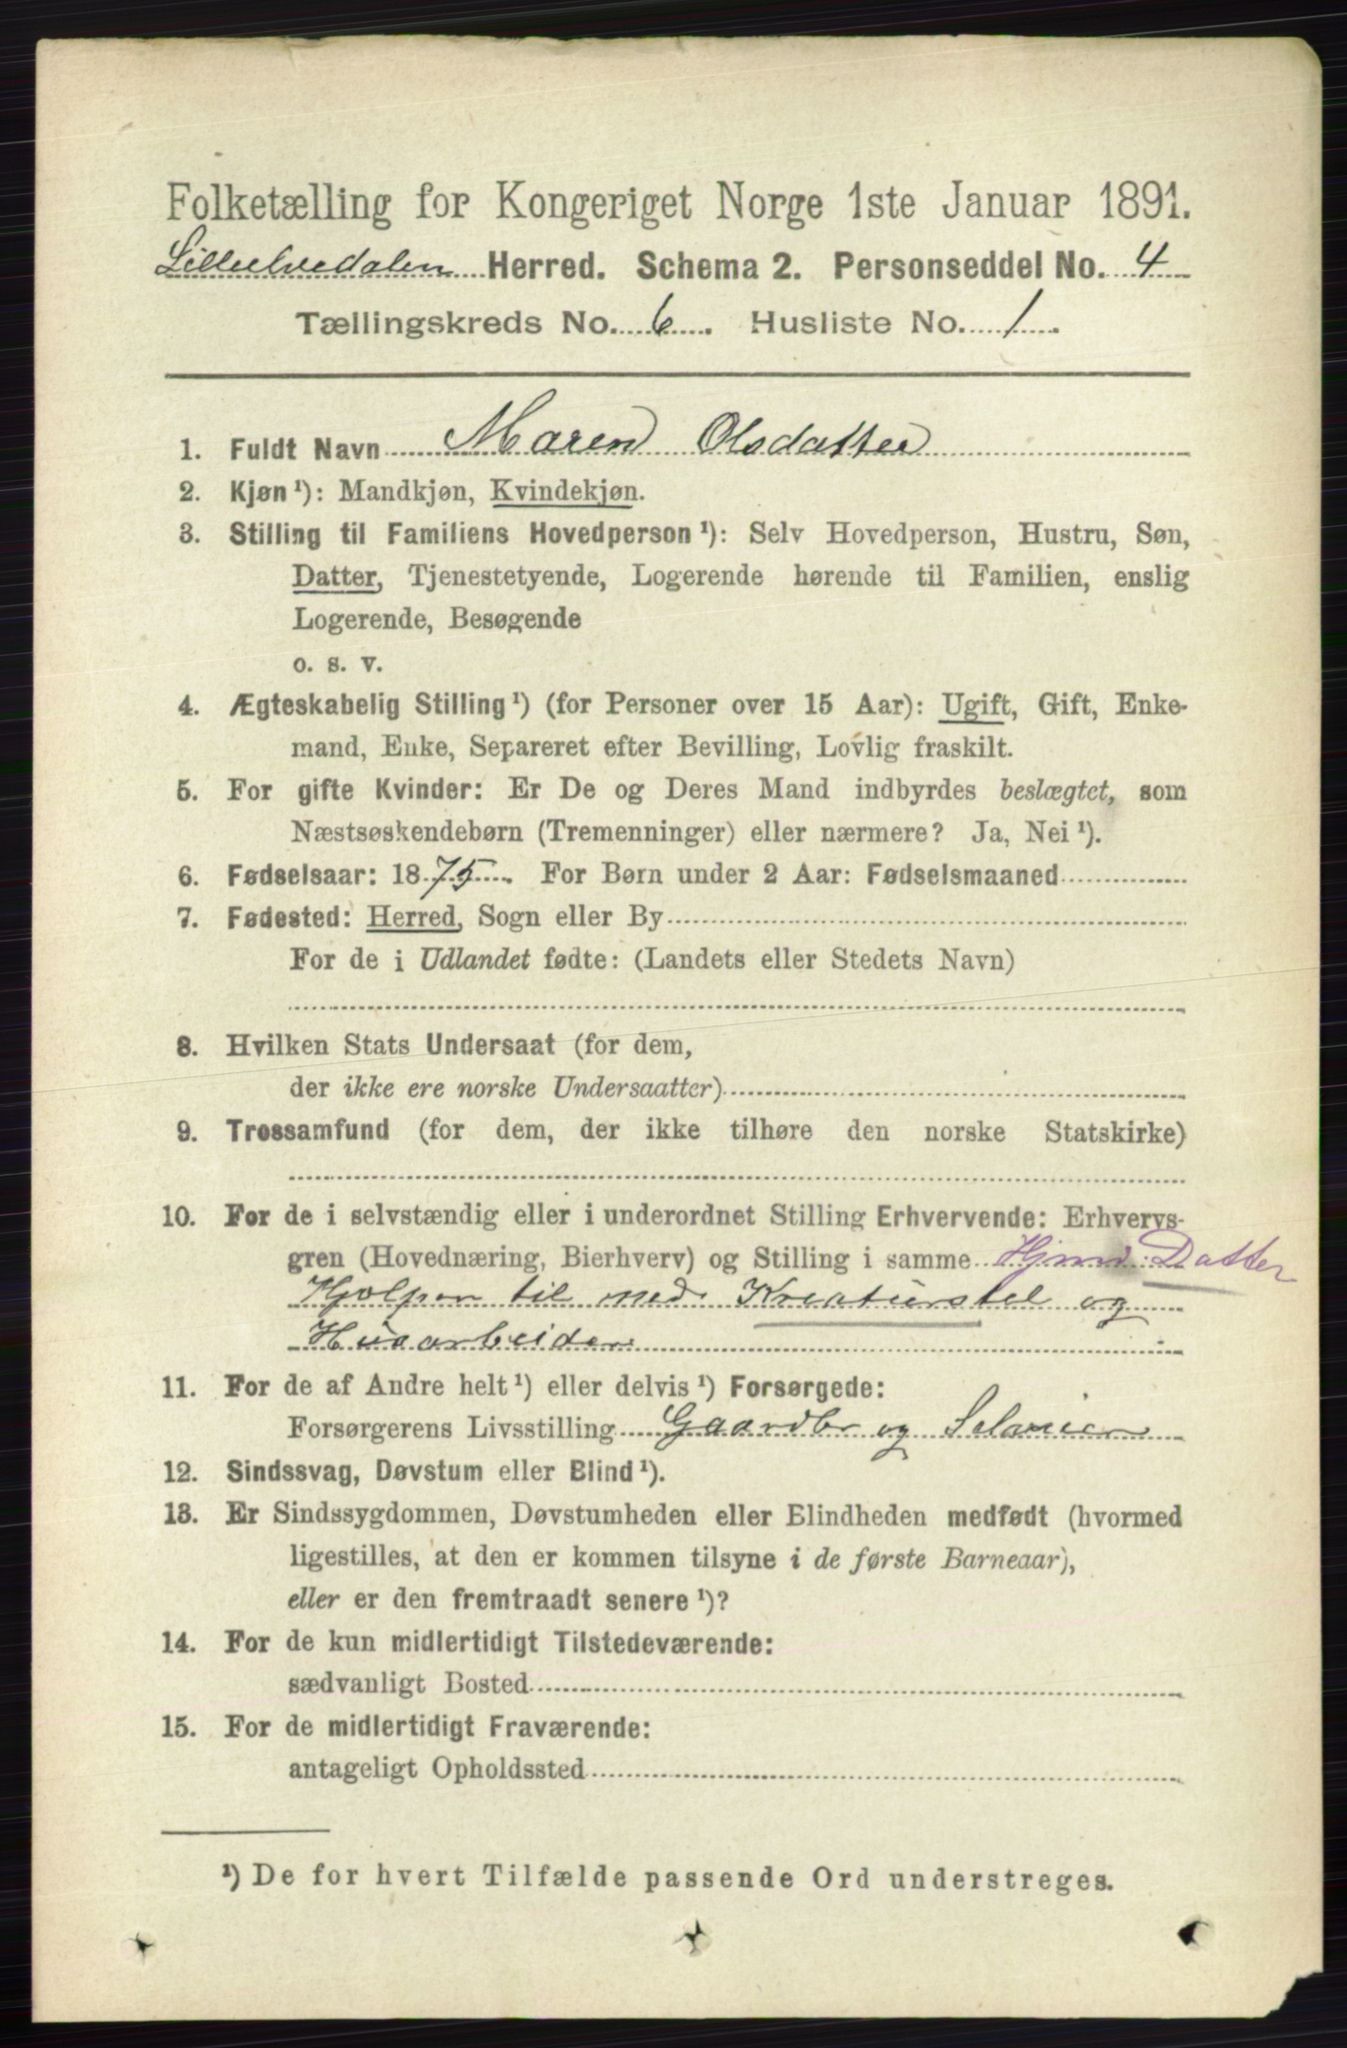 Folketælling for Kongeriget Norge 1ste Januar 1891.
Lilleelvedalen Herred. Schema 2. Personseddel No. 4
Tællingskreds No. 6. Husliste No. 1.
1. Fuldt Navn Maren Olsdatter
2. Kjøn¹): Mandkjøn, Kvindekjøn.
3. Stilling til Familiens Hovedperson¹): Selv Hovedperson, Hustru, Søn,
Datter, Tjenestetyende, Logerende hørende til Familien, enslig
Logerende, Besøgende
o. s. v.
4. Ægteskabelig Stilling¹) (for Personer over 15 Aar): Ugift, Gift, Enke-
mand, Enke, Separeret efter Bevilling, Lovlig fraskilt.
5. For gifte Kvinder: Er De og Deres Mand indbyrdes beslægtet, som
Næstsøskendebørn (Tremenninger) eller nærmere? Ja, Nei¹).
6. Fødselsaar: 1875. For Børn under 2 Aar: Fødselsmaaned
7. Fødested: Herred, Sogn eller By
For de i Udlandet fødte: (Landets eller Stedets Navn)
8. Hvilken Stats Undersaat (for dem,
der ikke ere norske Undersaatter)
9. Trossamfund (for dem, der ikke tilhøre den norske Statskirke)
10. For de i selvstændig eller i underordnet Stilling Erhvervende: Erhvervs-
gren (Hovednæring, Bierhverv) og Stilling i samme Datter
Hjælper til med Kreaturstel og
Husarbeider
11. For de af Andre helt¹) eller delvis¹) Forsørgede:
Forsørgerens Livsstilling Gaardbr og
12. Sindssvag, Døvstum eller Blind¹).
13. Er Sindssygdommen, Døvstumheden eller Blindheden medfødt (hvormed
ligestilles, at den er kommen tilsyne i de første Barneaar),
eller er den fremtraadt senere¹)?
14. For de kun midlertidigt Tilstedeværende:
sædvanligt Bosted
15. For de midlertidigt Fraværende:
antageligt Opholdssted
¹) De for hvert Tilfælde passende Ord understreges.